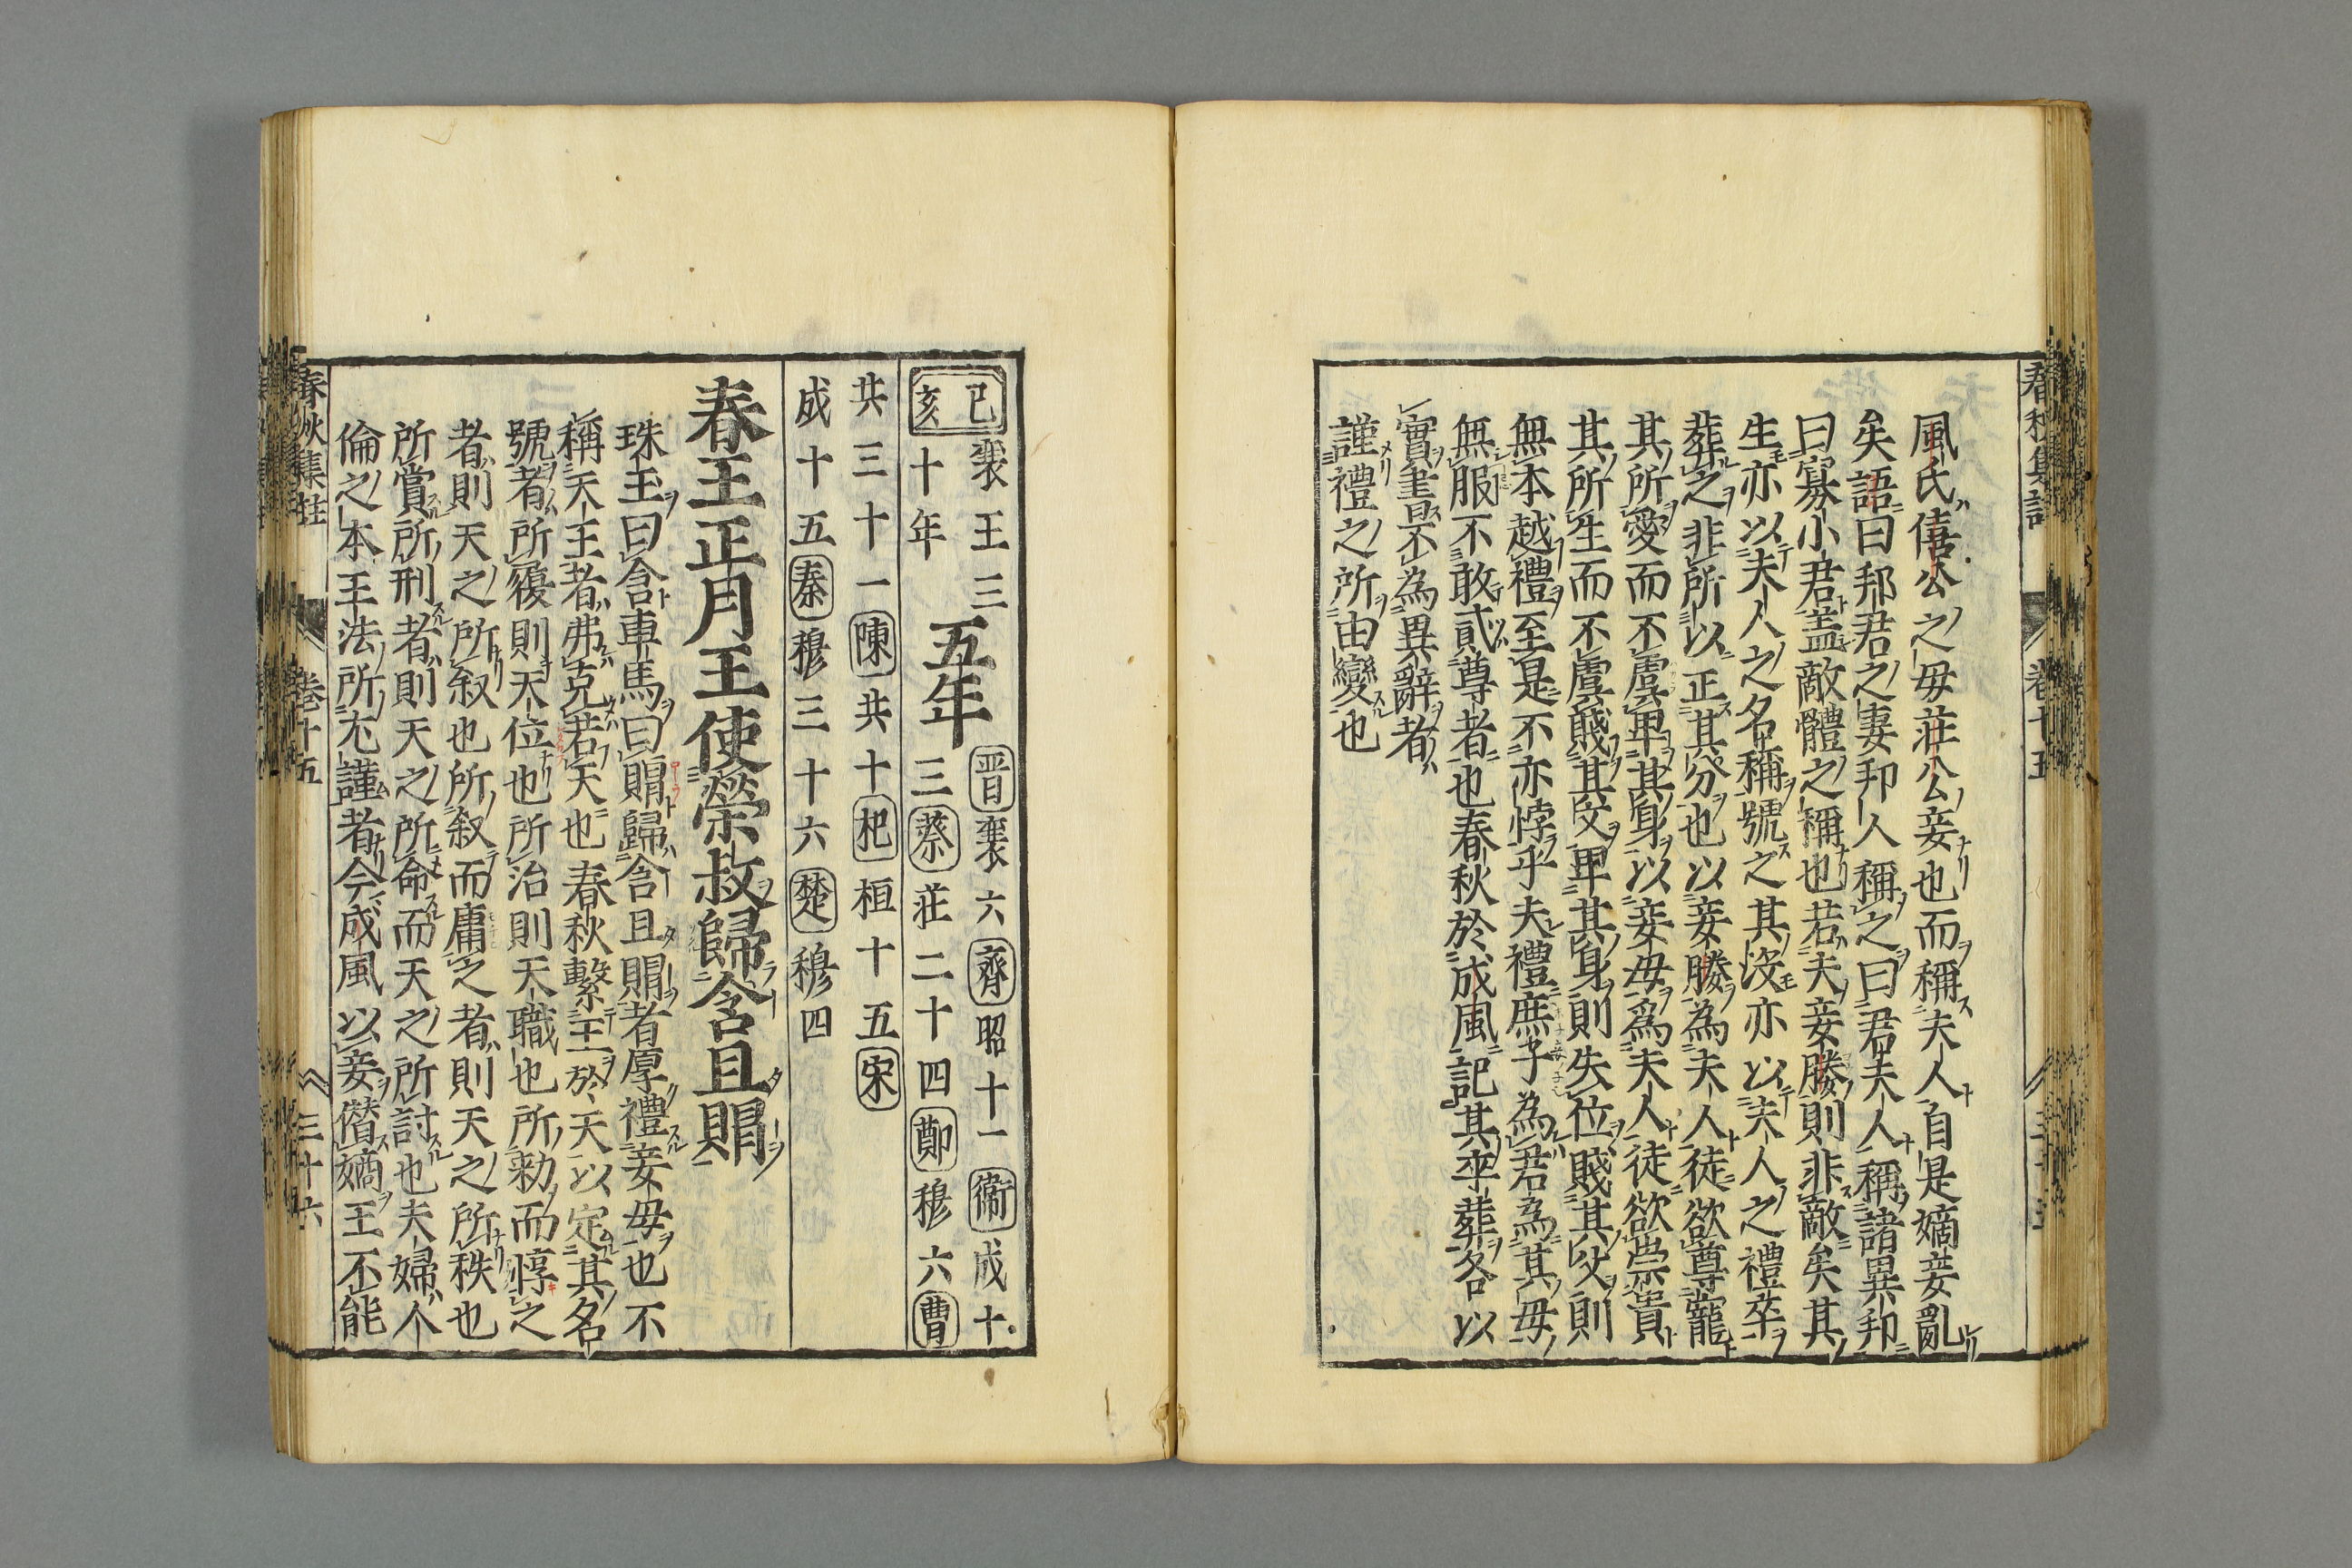 風氏僖公之母莊公妾也而稱夫人自是嫡妾亂
矣語曰邦君之妻邦人稱之曰君夫人稱諸異邦
曰寡小君蓋敵體之稱也若夫妾媵則非敵矣其
生亦以夫人之名稱號之其沒亦以夫人之禮卒
葬之非所以正其分也以妾媵為夫人徒欲尊寵
其所愛而不虞卑其身以妾母為夫人徒欲崇貴
其所生而不虞賤其父卑其身則失位賤其父則
無本越禮至是不亦悖乎夫禮庶子為君為其母
無服不敢貳尊者也春秋於成風記其卒葬各以
實書不為異辭者
謹禮之所由變也
春秋集註 卷十五
己亥 襄王三十年 五年 晋襄六齊昭十一衞成十
三蔡莊二十四鄭穆六曹
共三十一陳共十杞桓十五宋
成十五秦穆三十六楚穆四
春王正月王使榮叔歸含且賵
珠玉曰含車馬曰賵歸含且賵者厚禮妾母也不
稱天王者弗克若天也春秋繫王於天以定其名
號者所履則天位也所治則天職也所勑而惇之
者則天之所叙也所叙而庸之者則天之所秩也
所賞所刑者則天之所命而天之所討也夫婦人
倫之本王法所尤謹者今成風以妾僭嫡王不能
春秋集註 卷十五 三十六